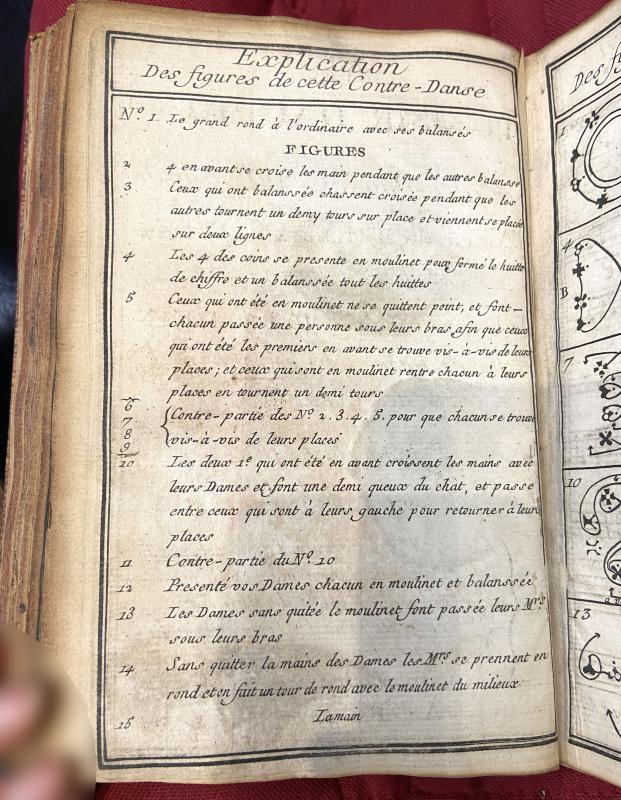 Explication
Des figures de cette Contre-Danse
Nº 1. Le grand rond à l'ordinaire avec ses balansés
FIGURES
2 4 en avant se croise les main pendant que les autres balansse
3 Ceux qui ont balanssée chassent croisée pendant que les
autres tournent un demy tours sur place et viennent se placée
sur deux lignes
4 Les 4 des coins se presente en moulinet pour formé le huitte
de chiffre et un balanssée tout les huittes
5 Ceux qui ont été en moulinet ne se quittent point, et font —
chacun passée une personne sous leurs bras afin que ceux
qui ont été les premiers en avant se trouve vis-à-vis de leurs
places; et ceux qui sont en moulinet rentre chacun à leurs
places en tournent un demi tours
6
7 Contre-partie des Nº 2. 3. 4. 5. pour que chacun se trouve
8 vis-à-vis de leurs places
9
10 Les deux 1ᵉ qui ont été en avant croissent les mains avec
leurs Dames et font une demi queux du chat, et passe
entre ceux qui sont à leurs gauche pour retourner à leurs
places
11 Contre-partie du Nº 10
12 Presenté vos Dames chacun en moulinet et balanssée
13 Les Dames sans quitée le moulinet font passée leurs Mʳˢ
sous leurs bras
14 Sans quitter la mains des Dames les Mʳˢ se prennent en
rond et on fait un tour de rond avec le moulinet du milieux
15 La main
Des fi
1
4
B
7
10
13